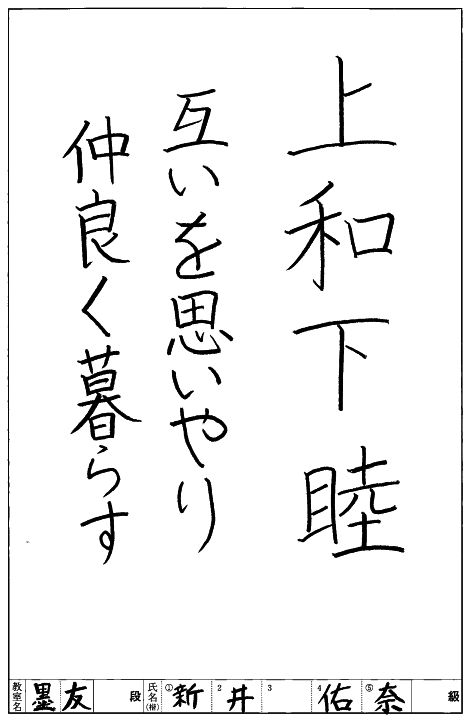 上和下睦
互いを思いやり
仲良く暮らす
教室名 墨友 段 氏名(楷) ① 新 2 井 3 4 佑 ⑤ 奈 級